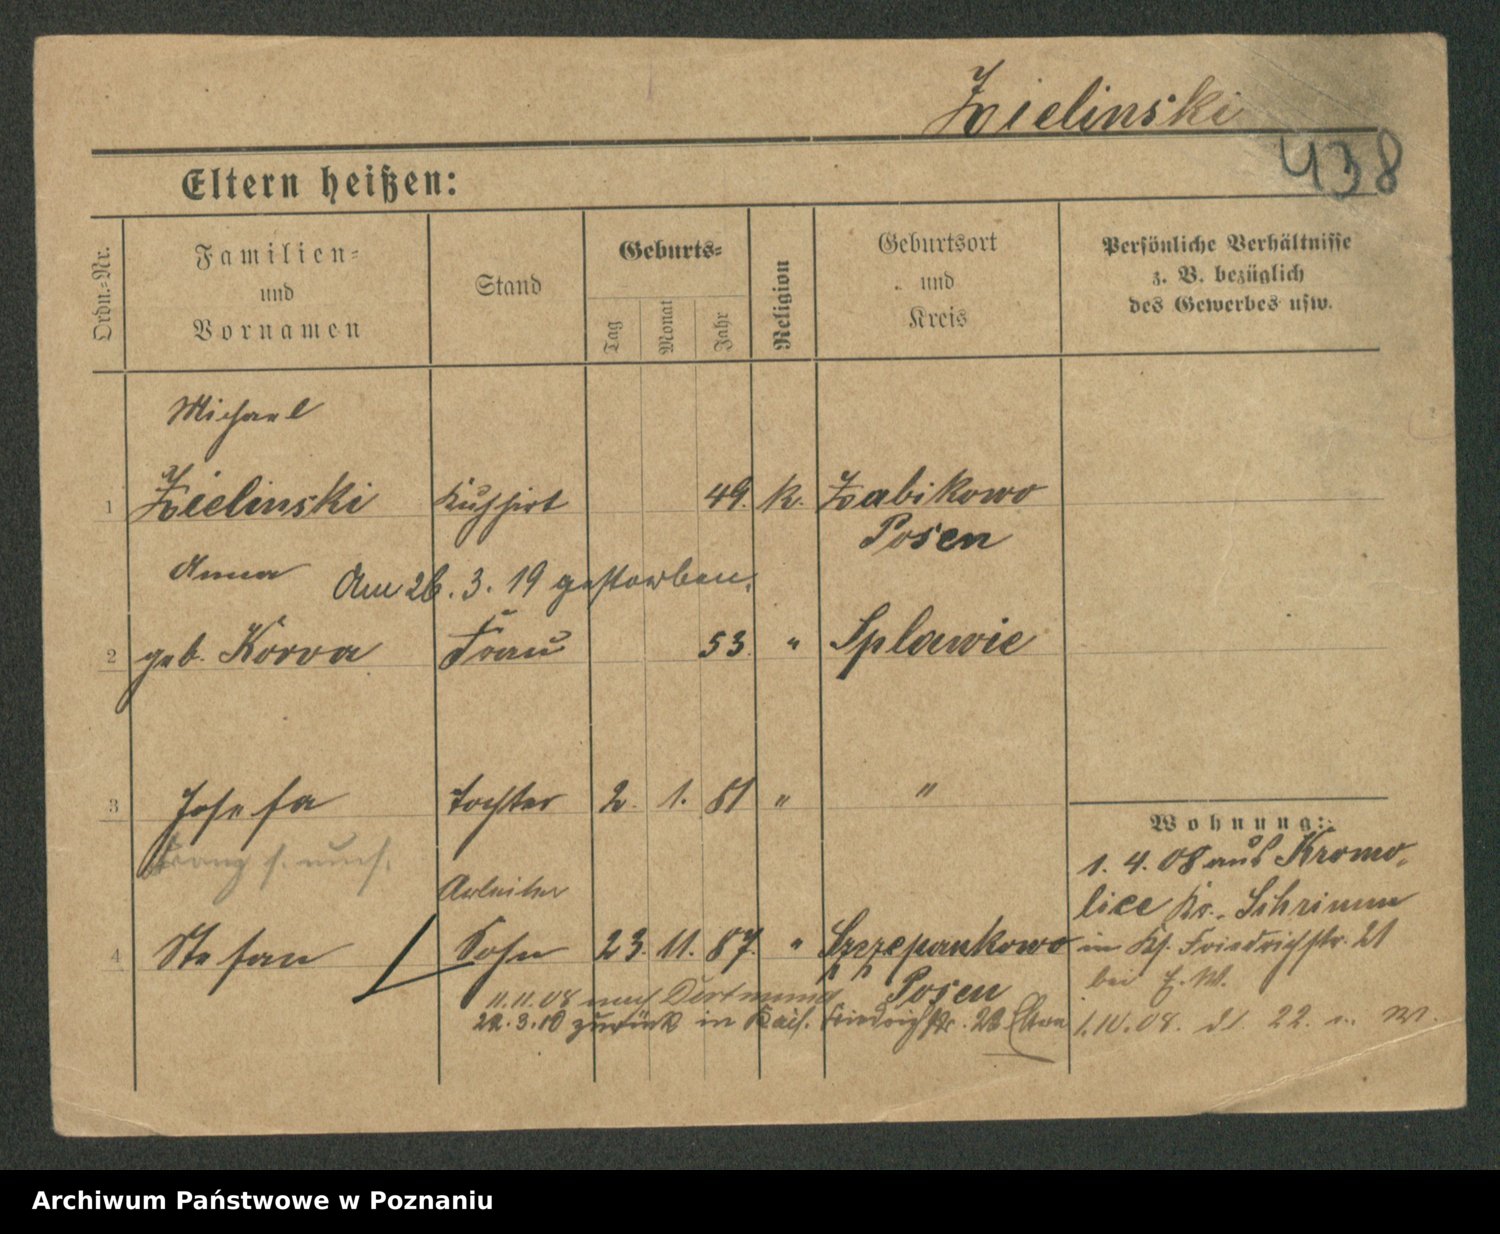 Zielinski
438
Eltern heißen:
Ordn.=Nr.
Familien=
und
Vornamen
Stand
Geburts=
Tag
Monat
Jahr
Religion
Geburtsort
und
Kreis
Persönliche Verhältnisse
z. B. bezüglich
des Gewerbes usw.
Michael
1 Zielinski Kuhhirt 49. k. Zabikowo
Posen
Anna Am 26. 3. 19 gestorben.
2 geb. Korva Frau 53. " Splawie
3 Josefa Tochter 2. 1. 81 " "
Wohnung:
1. 4. 08 aus Kromo-
lice Kr. Schrimm
in Ks. Friedrichstr. 21
bei E. W.
1.10.08. dt. 22. W.
Arbeiter
4 Stefan Sohn 23. 11. 87. " Szczepankowo
Posen
11.11.08 nach Dortmund
22.3.10 zurück in Kais. Friedrichstr. 26 Eltern
Archiwum Państwowe w Poznaniu